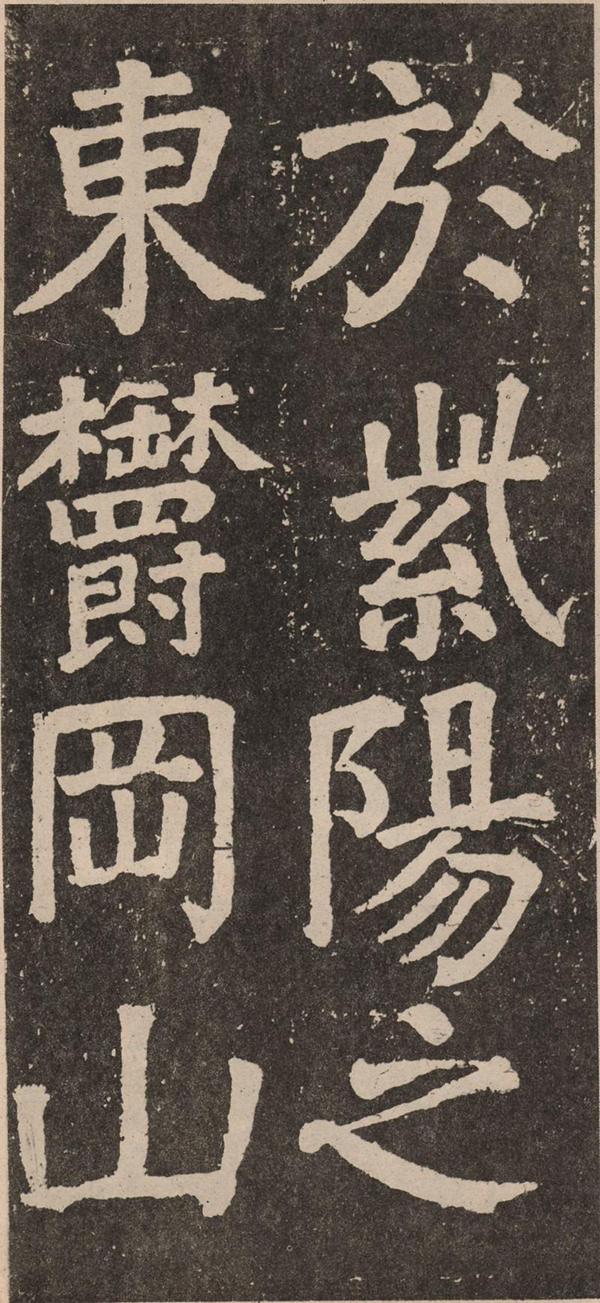 於紫陽之
東欝岡山